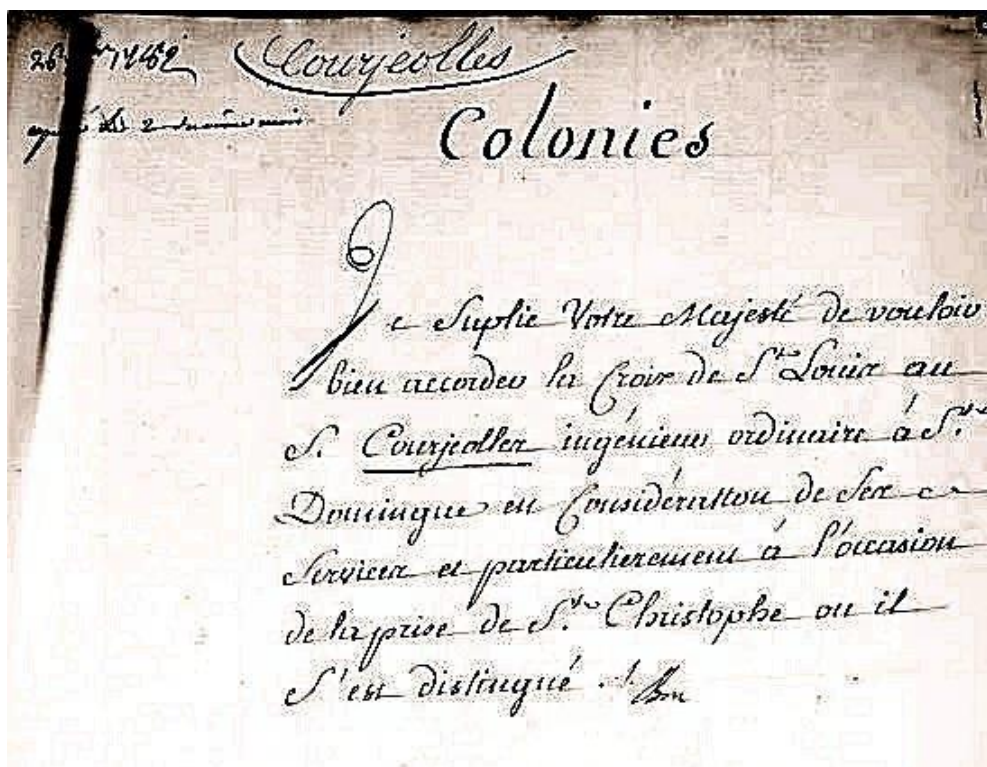 Courjeolles
2 du même mois
Colonies
Je Suplie Votre Majesté de vouloir
bien accorder la Croix de St. Louis au
S. Courjeolles ingénieur ordinaire à St.
Domingue en Considération de Ses
Services et particulierement à l'occasion
de la prise de St. Christophe ou il
S'est distingué. Bon